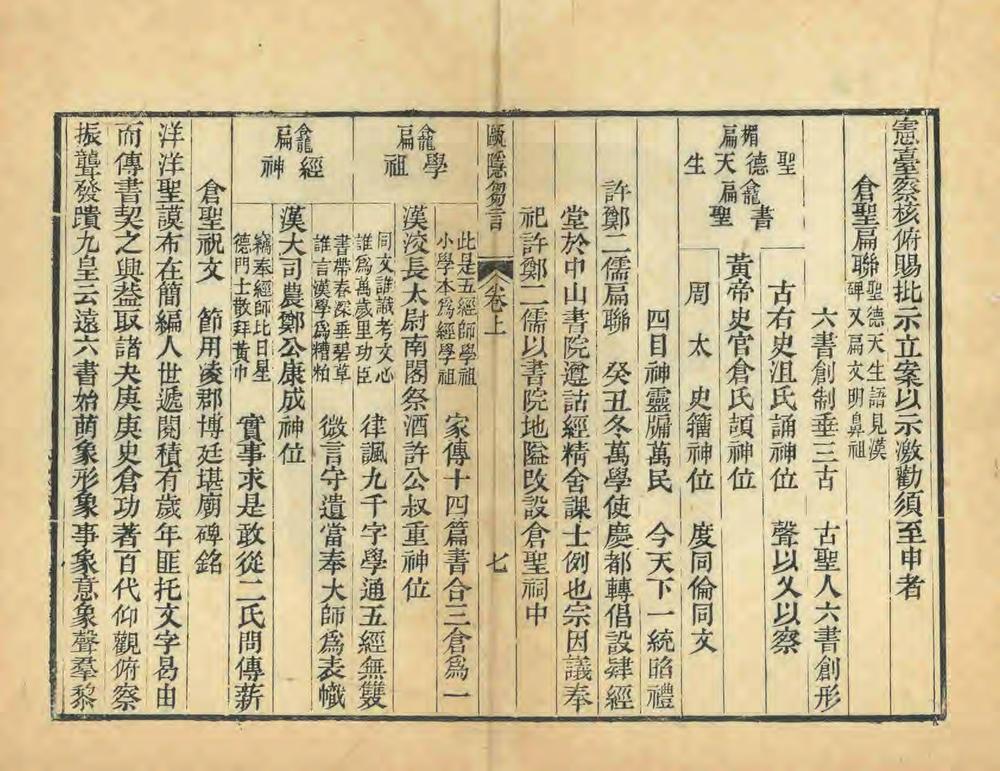 憲臺察核俯賜批示立案以示激勸須至申者
倉聖扁聯 聖德天生語見漢
碑又扁文明鼻祖
楣扁
聖德天生
龕扁
書聖
六書創制垂三古 古聖人六書創形
古右史沮氏誦神位 聲以乂以察
黃帝史官倉氏頡神位
周太史籀神位 度同倫同文
四目神靈牖萬民 今天下一統 禮
許鄭二儒扁聯 癸丑冬萬學使慶都轉倡設肄經
堂於中山書院遵詁經精舍課士例也宗因議奉
祀許鄭二儒以書院地隘改設倉聖祠中
甌隱芻言 卷上 七
龕扁
學祖
此是五經師學祖
小學本爲經學祖 家傳十四篇書合三倉爲一
漢洨長太尉南閣祭酒許公叔重神位
同文誰識考文心
誰爲萬歲里功臣 律諷九千字學通五經無雙
龕扁
經神
書帶春深垂碧草
誰言漢學爲糟粕 微言守遺當奉大師爲表幟
漢大司農鄭公康成神位
竊奉經師比日星
德門士散拜黃巾 實事求是敢從二氏問傳薪
倉聖祝文 節用凌郡博廷堪廟碑銘
洋洋聖謨布在簡編人世遞閱積有歲年匪托文字曷由
而傳書契之興葢取諸夬庚庚史倉功著百代仰觀俯察
振聾發聵九皇云遠六書始萌象形象事象意象聲羣黎